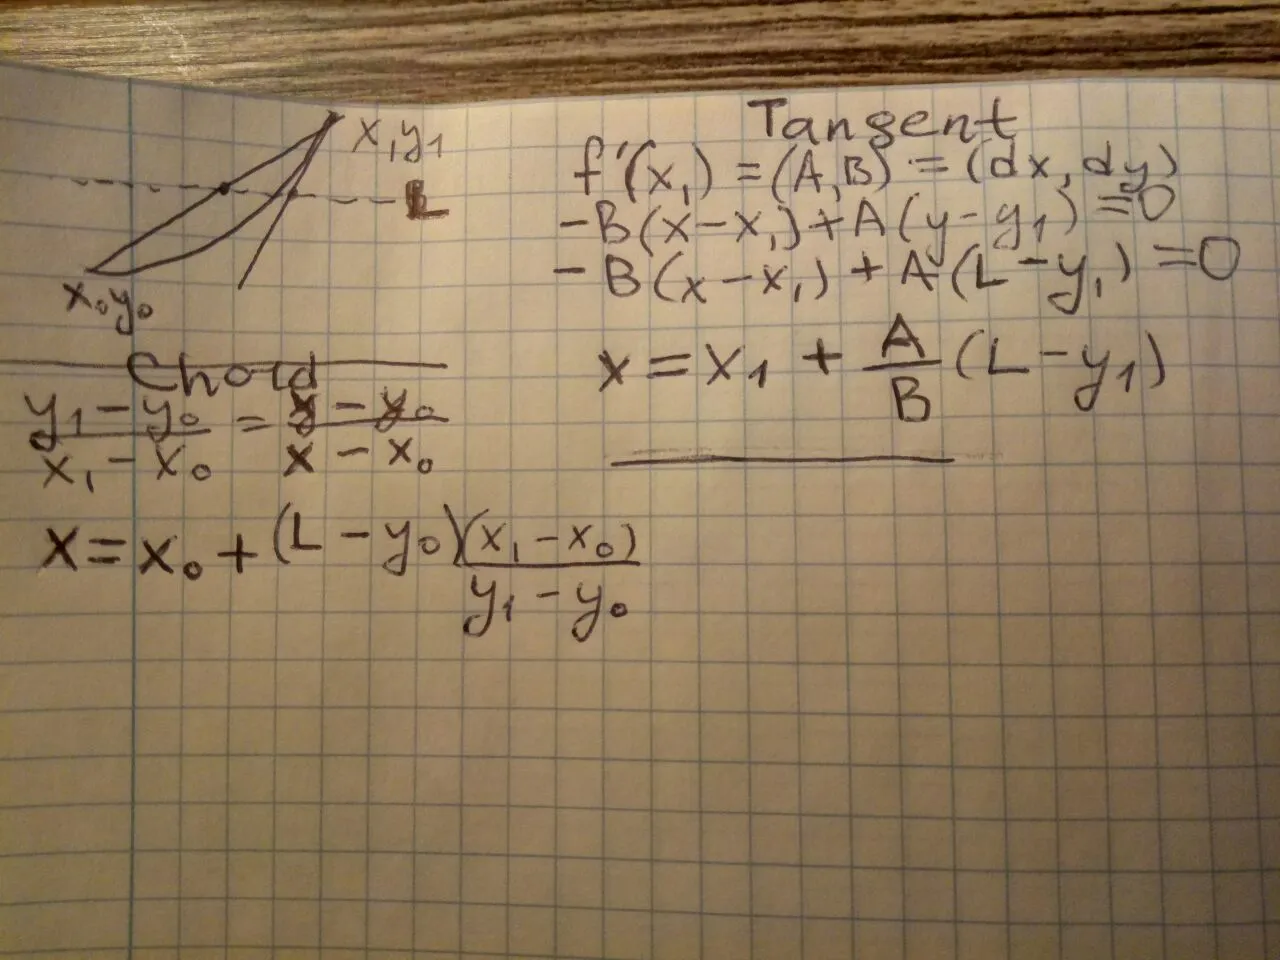 x₁y₁
L
x₀y₀
Chord
y₁ - y₀ / x₁ - x₀ = y - y₀ / x - x₀
x = x₀ + (L - y₀)(x₁ - x₀) / y₁ - y₀
Tangent
f'(x₁) = (A, B) = (dx, dy)
-B(x - x₁) + A(y - y₁) = 0
-B(x - x₁) + A(L - y₁) = 0
x = x₁ + A/B (L - y₁)